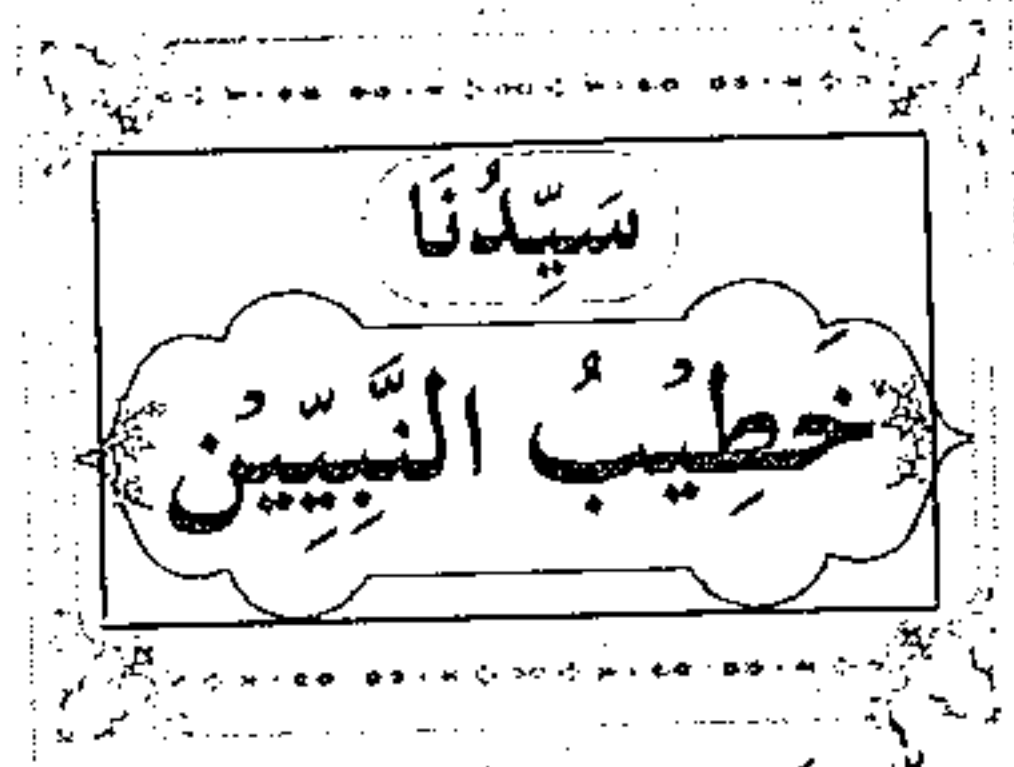 سَيِّدُنَا
خَطِيْبُ النَّبِيِّيْن